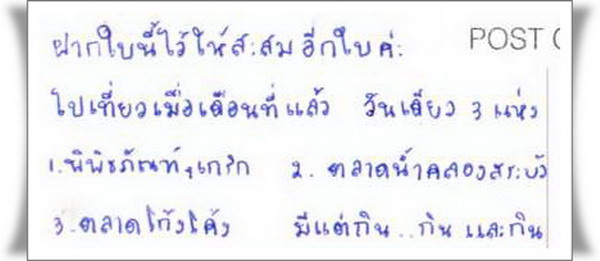 ฝากใบนี้ไว้ให้สะสมอีกใบค่ะ POST
ไปเที่ยวเมื่อเดือนที่แล้ว วันเดียว 3 แห่ง
1. พิพิธภัณฑ์ เกริก 2. ตลาดน้ำคลองสระบัว
3. ตลาดโก้งโค้ง มีแต่กิน..กิน และกิน